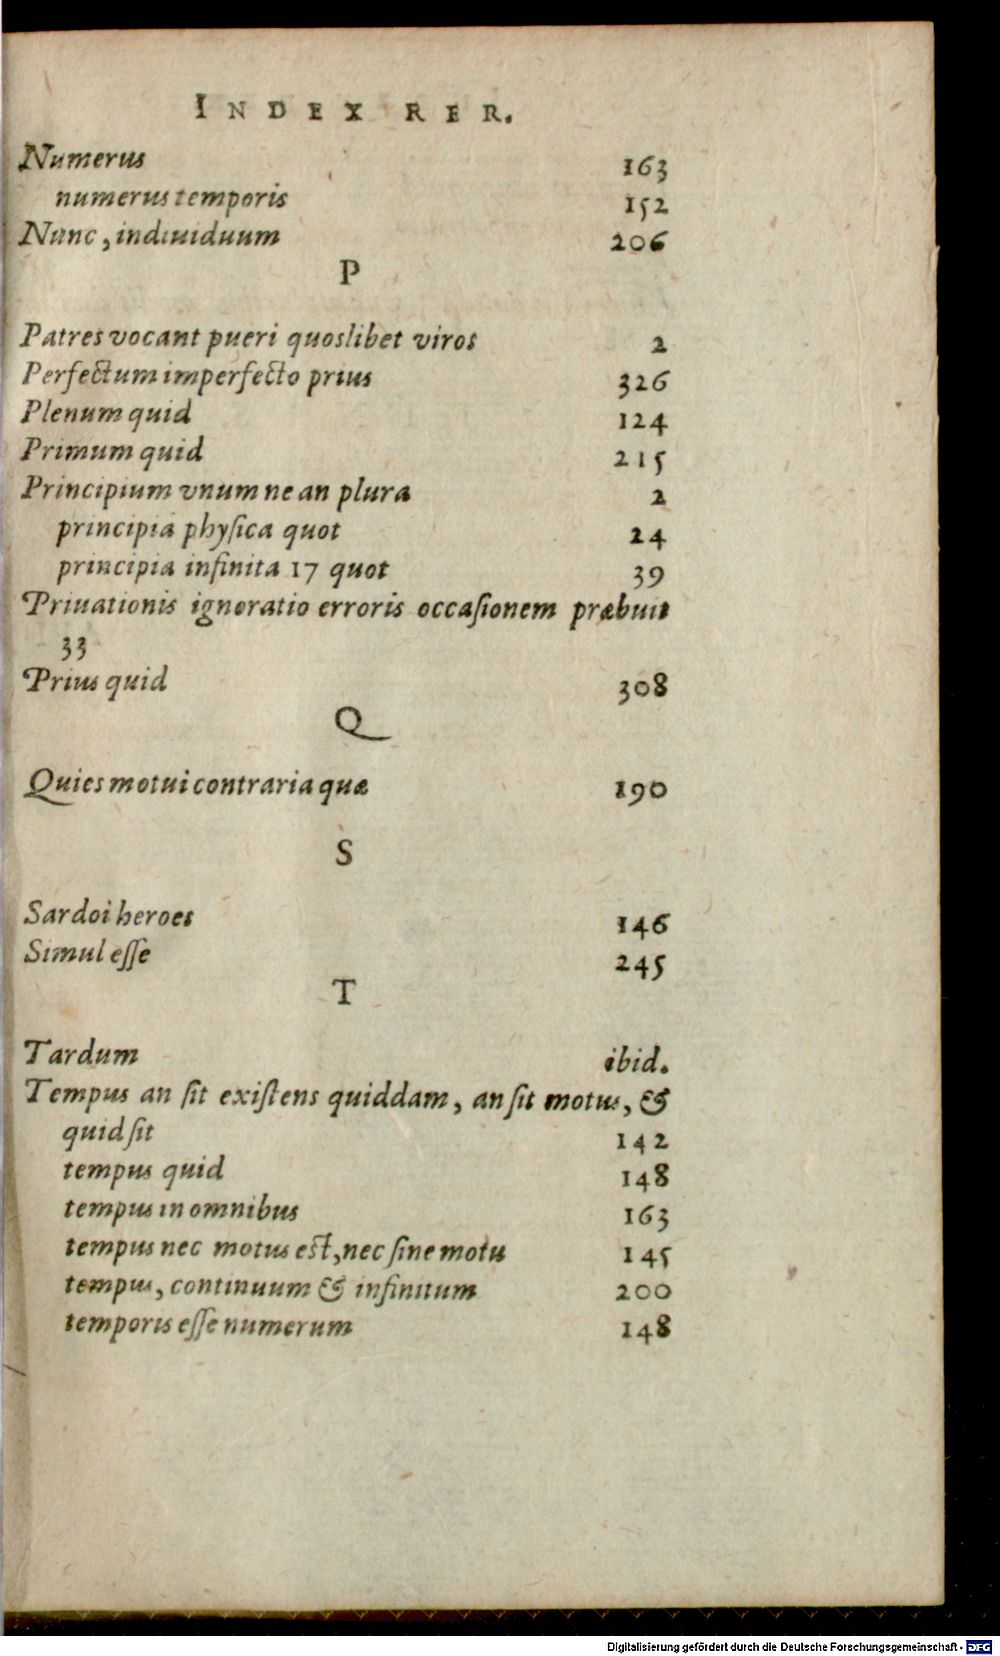 INDEX RER.
Numerus 163
numerus temporis 152
Nunc, indiuiduum 206
P
Patres vocant pueri quoslibet viros 2
Perfectum imperfecto prius 326
Plenum quid 124
Primum quid 215
Principium vnum ne an plura 2
principia phyſica quot 24
principia infinita 17 quot 39
Priuationis ignoratio erroris occaſionem præbuit
33
Prius quid 308
Q
Quies motui contraria quæ 190
S
Sardoi heroes 146
Simul eſſe 245
T
Tardum ibid.
Tempus an ſit exiſtens quiddam, an ſit motus, &
quid ſit 142
tempus quid 148
tempus in omnibus 163
tempus nec motus eſt, nec ſine motu 145
tempus, continuum & infinitum 200
temporis eſſe numerum 148
Digitalisierung gefördert durch die Deutsche Forschungsgemeinschaft - DFG